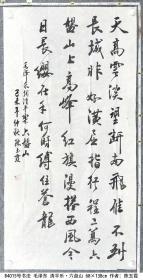 天高雲淡望斷南飛雁不到
長城非好漢屈指行程二萬六
盤山上高峰紅旗漫捲西風今
日長纓在手何時縛住蒼龍
毛澤東詞清平樂六盤山
84015号书法 毛泽东 清平乐·六盘山 68×138cm 作者：陈玉霞